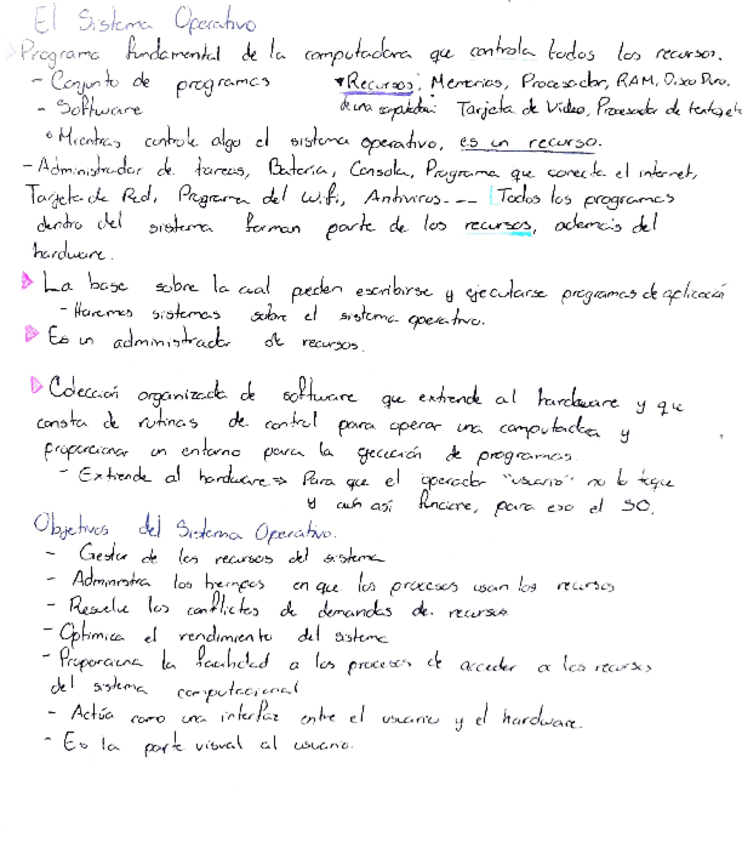 El Sistema Operativo
Programa fundamental de la computadora que controla todos los recursos.
- Conjunto de programas
Recursos: Memorias, Procesador, RAM, Disco Duro.
- Software
de una computadora: Tarjeta de Video, Procesador de texto, etc
• Mientras controle algo el sistema operativo, es un recurso.
- Administrador de tareas, Batería, Consola, Programa que conecta el internet,
Tarjeta de Red, Programa del wifi, Antivirus... Todos los programas
dentro del sistema forman parte de los recursos, además del
hardware.
La base sobre la cual pueden escribirse y ejecutarse programas de aplicación
- Haremos sistemas sobre el sistema operativo.
Es un administrador de recursos.
Colección organizada de software que extiende al hardware y que
consta de rutinas de control para operar una computadora y
proporcionar un entorno para la ejecución de programas.
- Extiende al hardware => Para que el operador "usuario" no lo toque
y aun así funcione, para eso el SO.
Objetivos del Sistema Operativo.
- Gestor de los recursos del sistema
- Administra los tiempos en que los procesos usan los recursos
- Resuelve los conflictos de demandas de recursos
- Optimiza el rendimiento del sistema
- Proporciona la facilidad a los procesos de acceder a los recursos
del sistema computacional
- Actúa como una interfaz entre el usuario y el hardware.
- Es la parte visual al usuario.